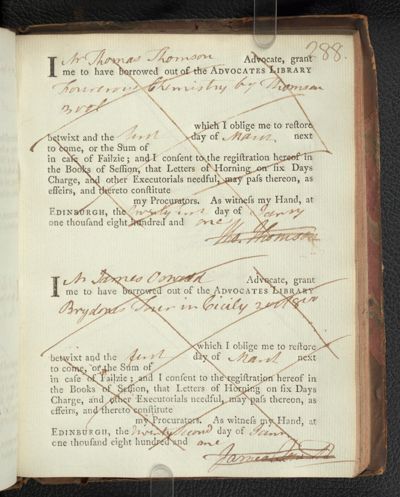 288.
I Mr Thomas Thomson Advocate, grant
me to have borrowed out of the ADVOCATES LIBRARY
Chemistry by Thomson
3 vols
which I oblige me to reſtore
betwixt and the first day of March next
to come, or the Sum of
in caſe of Failzie; and I conſent to the regiſtration hereof in
the Books of Seſſion, that Letters of Horning on ſix Days
Charge, and other Executorials needful, may paſs thereon, as
effeirs, and thereto conſtitute
my Procurators. As witneſs my Hand, at
EDINBURGH, the twenty first day of Janry
one thouſand eight hundred and one
Tho. Thomson
I Mr James Advocate, grant
me to have borrowed out of the ADVOCATES LIBRARY
Brydons Tour in Cicily 2 vols 8vo
which I oblige me to reſtore
betwixt and the first day of March next
to come, or the Sum of
in caſe of Failzie; and I conſent to the regiſtration hereof in
the Books of Seſſion, that Letters of Horning on ſix Days
Charge, and other Executorials needful, may paſs thereon, as
effeirs, and thereto conſtitute
my Procurators. As witneſs my Hand, at
EDINBURGH, the twenty second day of Janry
one thouſand eight hundred and one
James